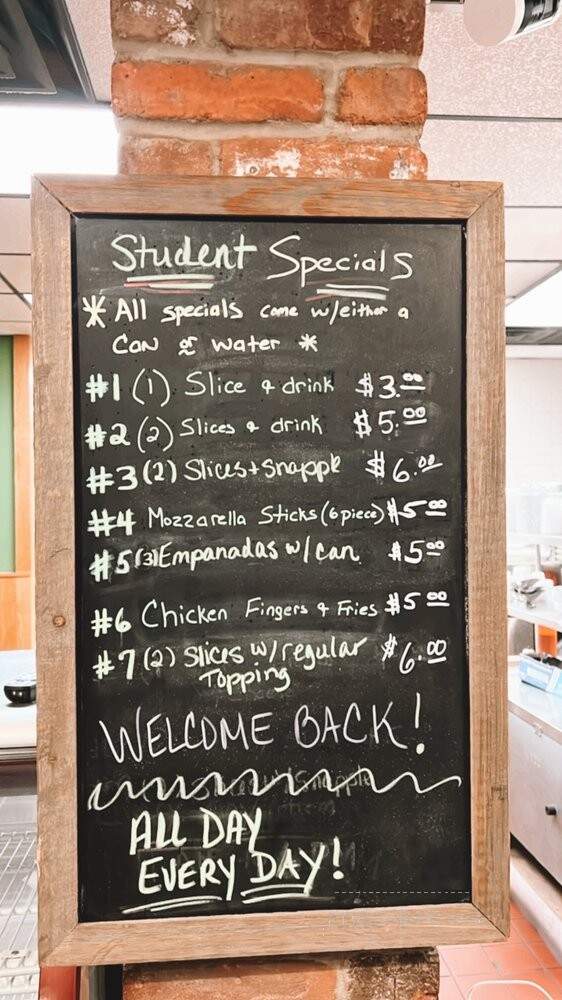 Student Specials
* All specials come w/either a
Can or water *
#1 (1) Slice & drink $3.00
#2 (2) Slices & drink $5.00
#3 (2) Slices + Snapple $6.00
#4 Mozzarella Sticks (6 piece) $5.00
#5 (3) Empanadas w/can $5.00
#6 Chicken Fingers & Fries $5.00
#7 (2) Slices w/regular $6.00
Topping
WELCOME BACK!
ALL DAY
EVERY DAY!